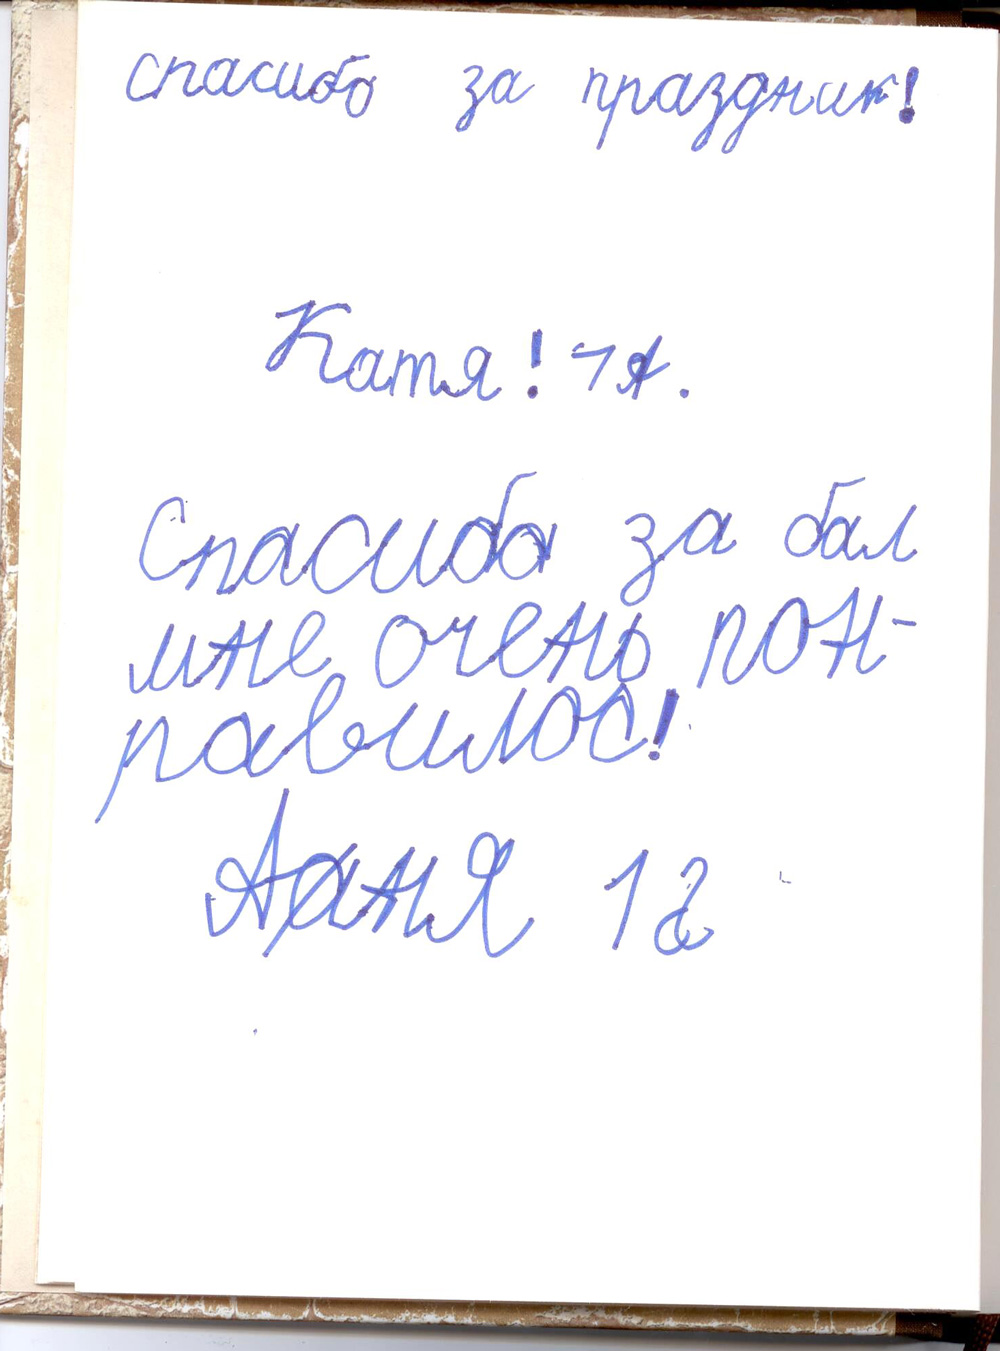 спасибо за праздник!
Катя! 1А.
Спасиба за бал
мне очень пон-
равилос!
Аня 1